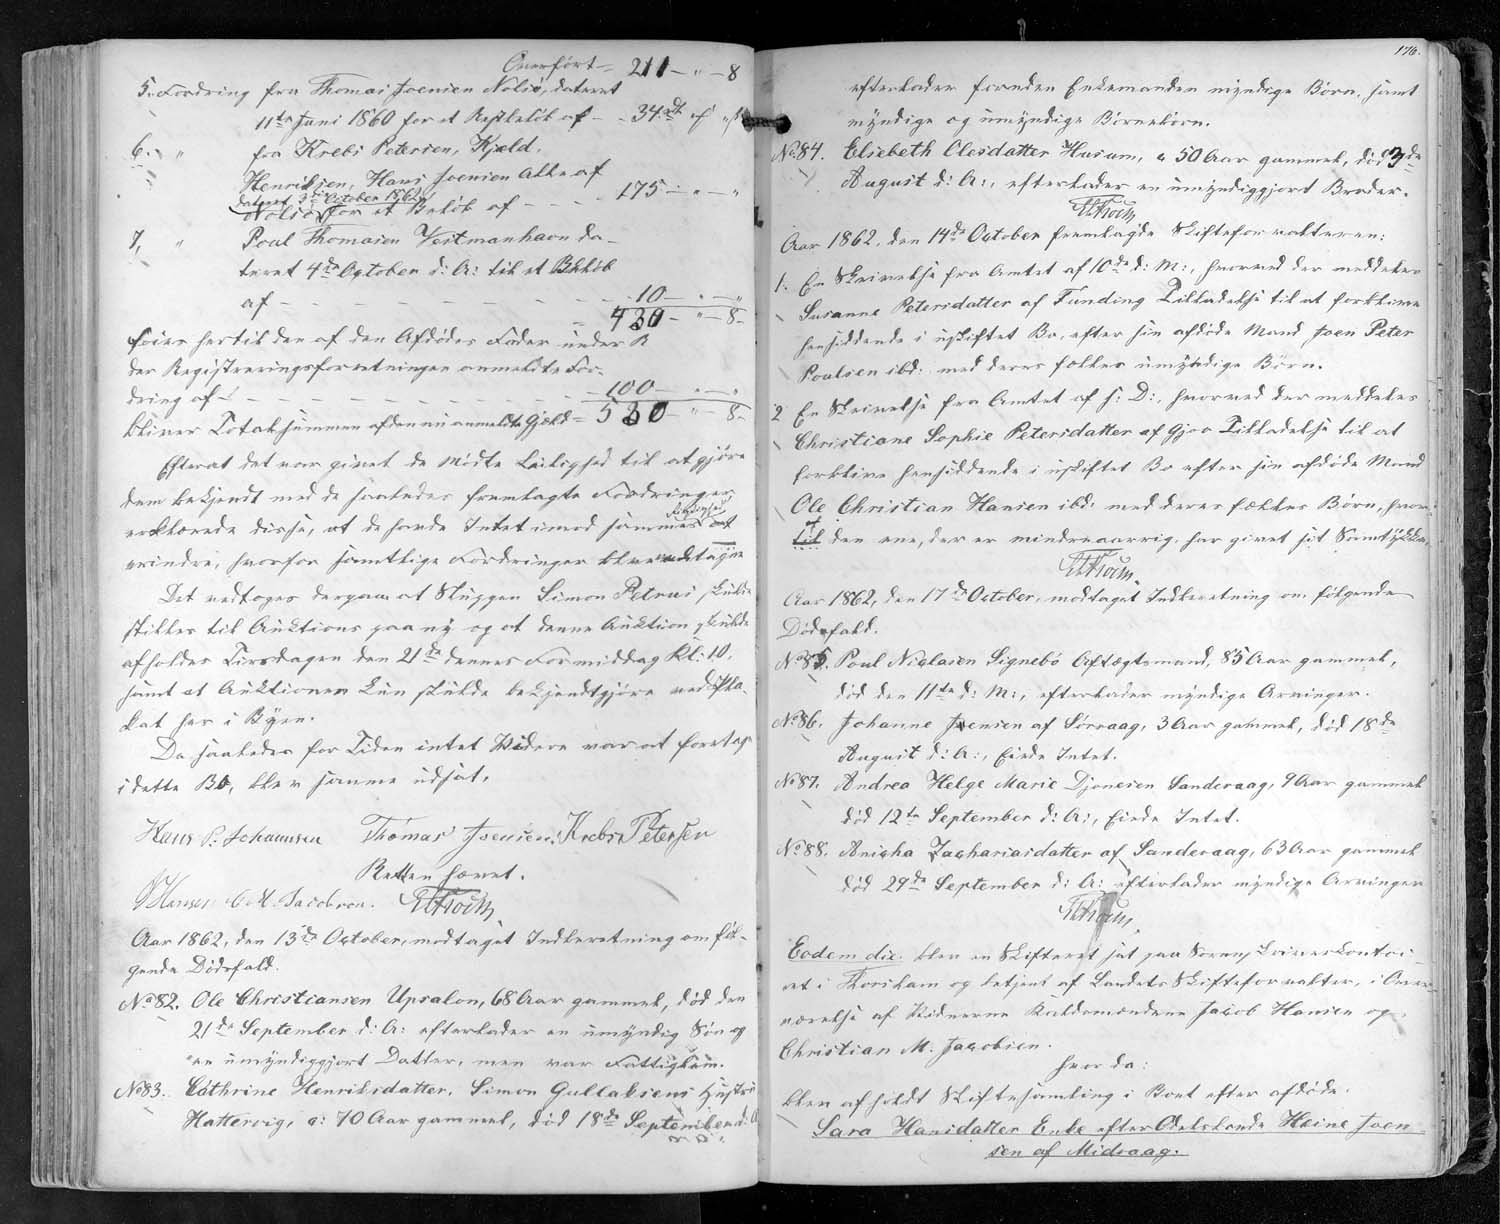 Overført – 211 – " – 8
5. Fordring fra Thomas Joensen Nolsø, dateret
11te Juni 1860 for et Restbeløb af – 34 rd
6. " fra Krebs Petersen, Kjeld
Henriksen, Hans Joensen alle af
dateret 3die October 1862
Nolsø for et Beløb af – – – – 175 – " – "
7, " Poul Thomasen Vestmanhavn da-
teret 4de October d: A: til et Beløb
af – – – – – – – – – 10 – " – "
430 – " – 8 –
føies hertil den af den Afdødes Fader under
der Registreringsforretningen anmeldte For-
dring af – – – – – – – – 100 – " – "
bliver Totalsummen af den nu anmeldte Gjæld = 530 – " – 8 –
Efterat det var givet de Mødte Leilighed til at gjøre
dem bekjendt med de saaledes fremlagte Fordringer,
erklærede disse, at de havde Intet imod sammes at
erindre, hvorfor samtlige Fordringer bleve vedtagne
Det vedtoges derpaa at Sluppen Simon Petrus skulde
stilles til Auktions paany og at denne Auktion skulde
afholdes Tirsdagen den 21de dennes Formiddag Kl: 10,
samt at Auktionen kun skulde bekjendtgjøres ved Pla-
kat her i Byen.
Da saaledes for Tiden intet Videre var at foretage
i dette Bo, blev samme udsat.
Hans P. Johannsen Thomas Joensen, Krebs Petersen
Retten hævet.
J Hansen C. M. Jacobsen. HTroim
Aar 1862, den 13de October, modtaget Indberetning om føl-
gende Dødsfald.
No 82. Ole Christiansen Upsalon, 68 Aar gammel, død den
21de September d: A: efterlader en umyndig Søn og
en umyndiggjort Datter, men var Fattiglem.
No 83. Cathrine Henriksdatter, Simon Gullaksens Hustru
Hattervig, c: 70 Aar gammel, død 18de September d: A
176.
efterlader foruden Enkemanden myndige Børn, samt
myndige og umyndige Børnebørn.
No 84. Elsebeth Olesdatter Husum, c 50 Aar gammel, død 3de
August d: A:, efterlader en umyndiggjort Broder.
HTroim
Aar 1862, den 14de October fremlagde Skifteforvalteren:
1. En Skrivelse fra Amtet af 10de d: M:, hvorved der meddeles
Susanne Petersdatter af Funding Tilladelse til at forblive
hensiddende i uskiftet Bo, efter sin afdøde Mand Joen Peter
Poulsen ibd: med deres fælles umyndige Børn.
2 En Skrivelse fra Amtet af s: D:, hvorved der meddeles
Christiane Sophie Petersdatter af Gjov Tilladelse til at
forblive hensiddende i uskiftet Bo efter sin afdøde Mand
Ole Christian Hansen ibd: med deres fælles Børn, hvor-
til den ene, der er mindreaarrig, har givet sit Samtykke.
HTroim
Aar 1862, den 17de October, modtaget Indberetning om følgende
Dødsfald.
No 85. Poul Niclasen Signebø Aftægtsmand, 85 Aar gammel,
død den 11te d: M:, efterlader myndige Arvinger.
No 86. Johanne Joensen af Sørvaag, 3 Aar gammel, død 18de
August d: A:, Eiede Intet.
No 87. Andrea Helge Marie Djonesen Sandevaag, 9 Aar gammel
død 12te September d: A:, Eiede Intet.
No 88. Anicha Zachariasdatter af Sandevaag, 63 Aar gammel
død 29de September d: A: efterlader myndige Arvinger
HTroim
Eodem die. blev en Skifteret sat paa Sorenskriverskontoi-
ret i Thorshavn og betjent af Landets Skifteforvalter, i Over-
værelse af Vidnerne Valdsmændene Jacob Hansen og
Christian M. Jacobsen.
hvor da:
blev afholdt Skiftesamling i Boet efter afdøde:
Sara Hansdatter Enke efter Odelsbonde Heine Joen-
sen af Midvaag.